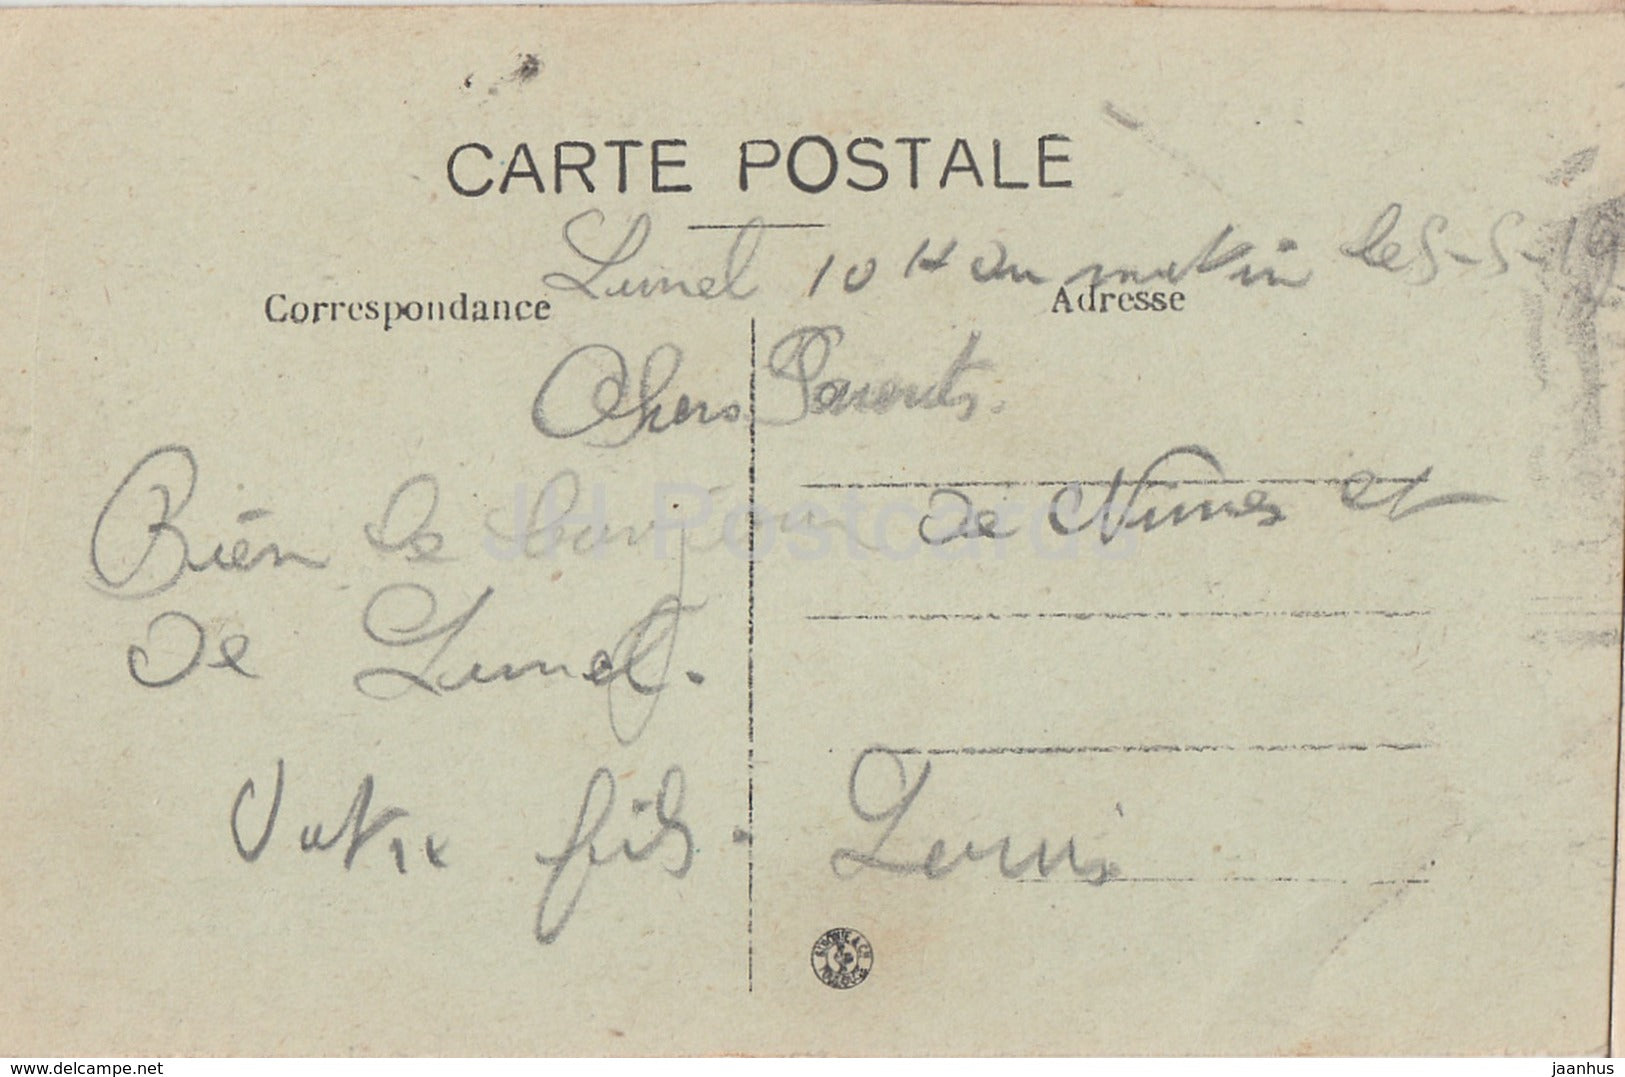 CARTE POSTALE
Lunel 10 H du matin le 5-5-19
Correspondance Adresse
Chers Parents.
Bien le bonjour de Nimes et
de Lunel.
Votre fils. Louis
JH Postcards
www.delcampe.net jaanhus